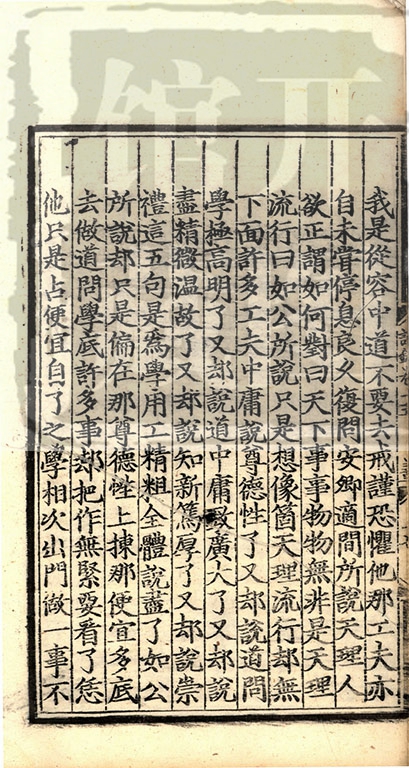 我是從容中道不要去戒謹恐懼他那工夫亦
自未嘗停息良久復問安卿適間所說天理人
欲正謂如何對曰天下事事物物無非是天理
流行曰如公所說只是想像箇天理流行却無
下面許多工夫中庸說尊德性了又却說道問
學極高明了又却說道中庸致廣大了又却說
盡精微温故了又却說知新篤厚了又却說崇
禮這五句是為學用工精粗全體說盡了如公
所說却只是偏在那尊德性上揀那便宜多底
去做道問學底許多事却把作無緊要看了恁
他只是占便宜自了之學相次出門做一事不